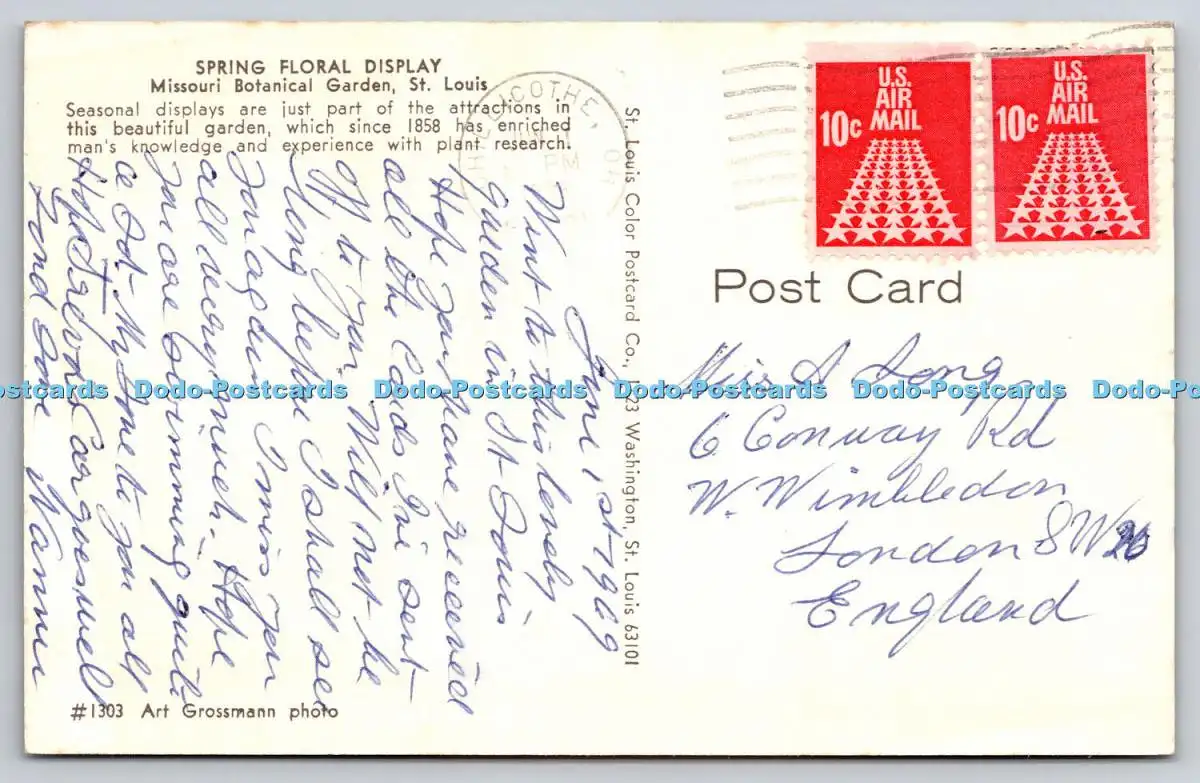 SPRING FLORAL DISPLAY
Missouri Botanical Garden, St. Louis
Seasonal displays are just part of the attractions in
this beautiful garden, which since 1858 has enriched
man's knowledge and experience with plant research.
June 1st - 1969
Went to this lovely
garden in St Louis
Hope you have received
all the Cards I've sent
off to you. Will not be
long before I shall see
you again. I miss you
all very much. Hope
you are
My love to you all
Hope Trevor's Car goes well
Fond love
#1303 Art Grossmann photo
St. Louis Color Postcard Co., 1723 Washington, St. Louis 63101
CHILLICOTHE, OH
PM
U.S.
AIR
MAIL
10c
U.S.
AIR
MAIL
10c
Post Card
Miss A Long
6 Conway Rd
W. Wimbledon
London SW20
England
Dodo-Postcards Dodo-Postcards Dodo-Postcards Dodo-Postcards Dodo-Postcards